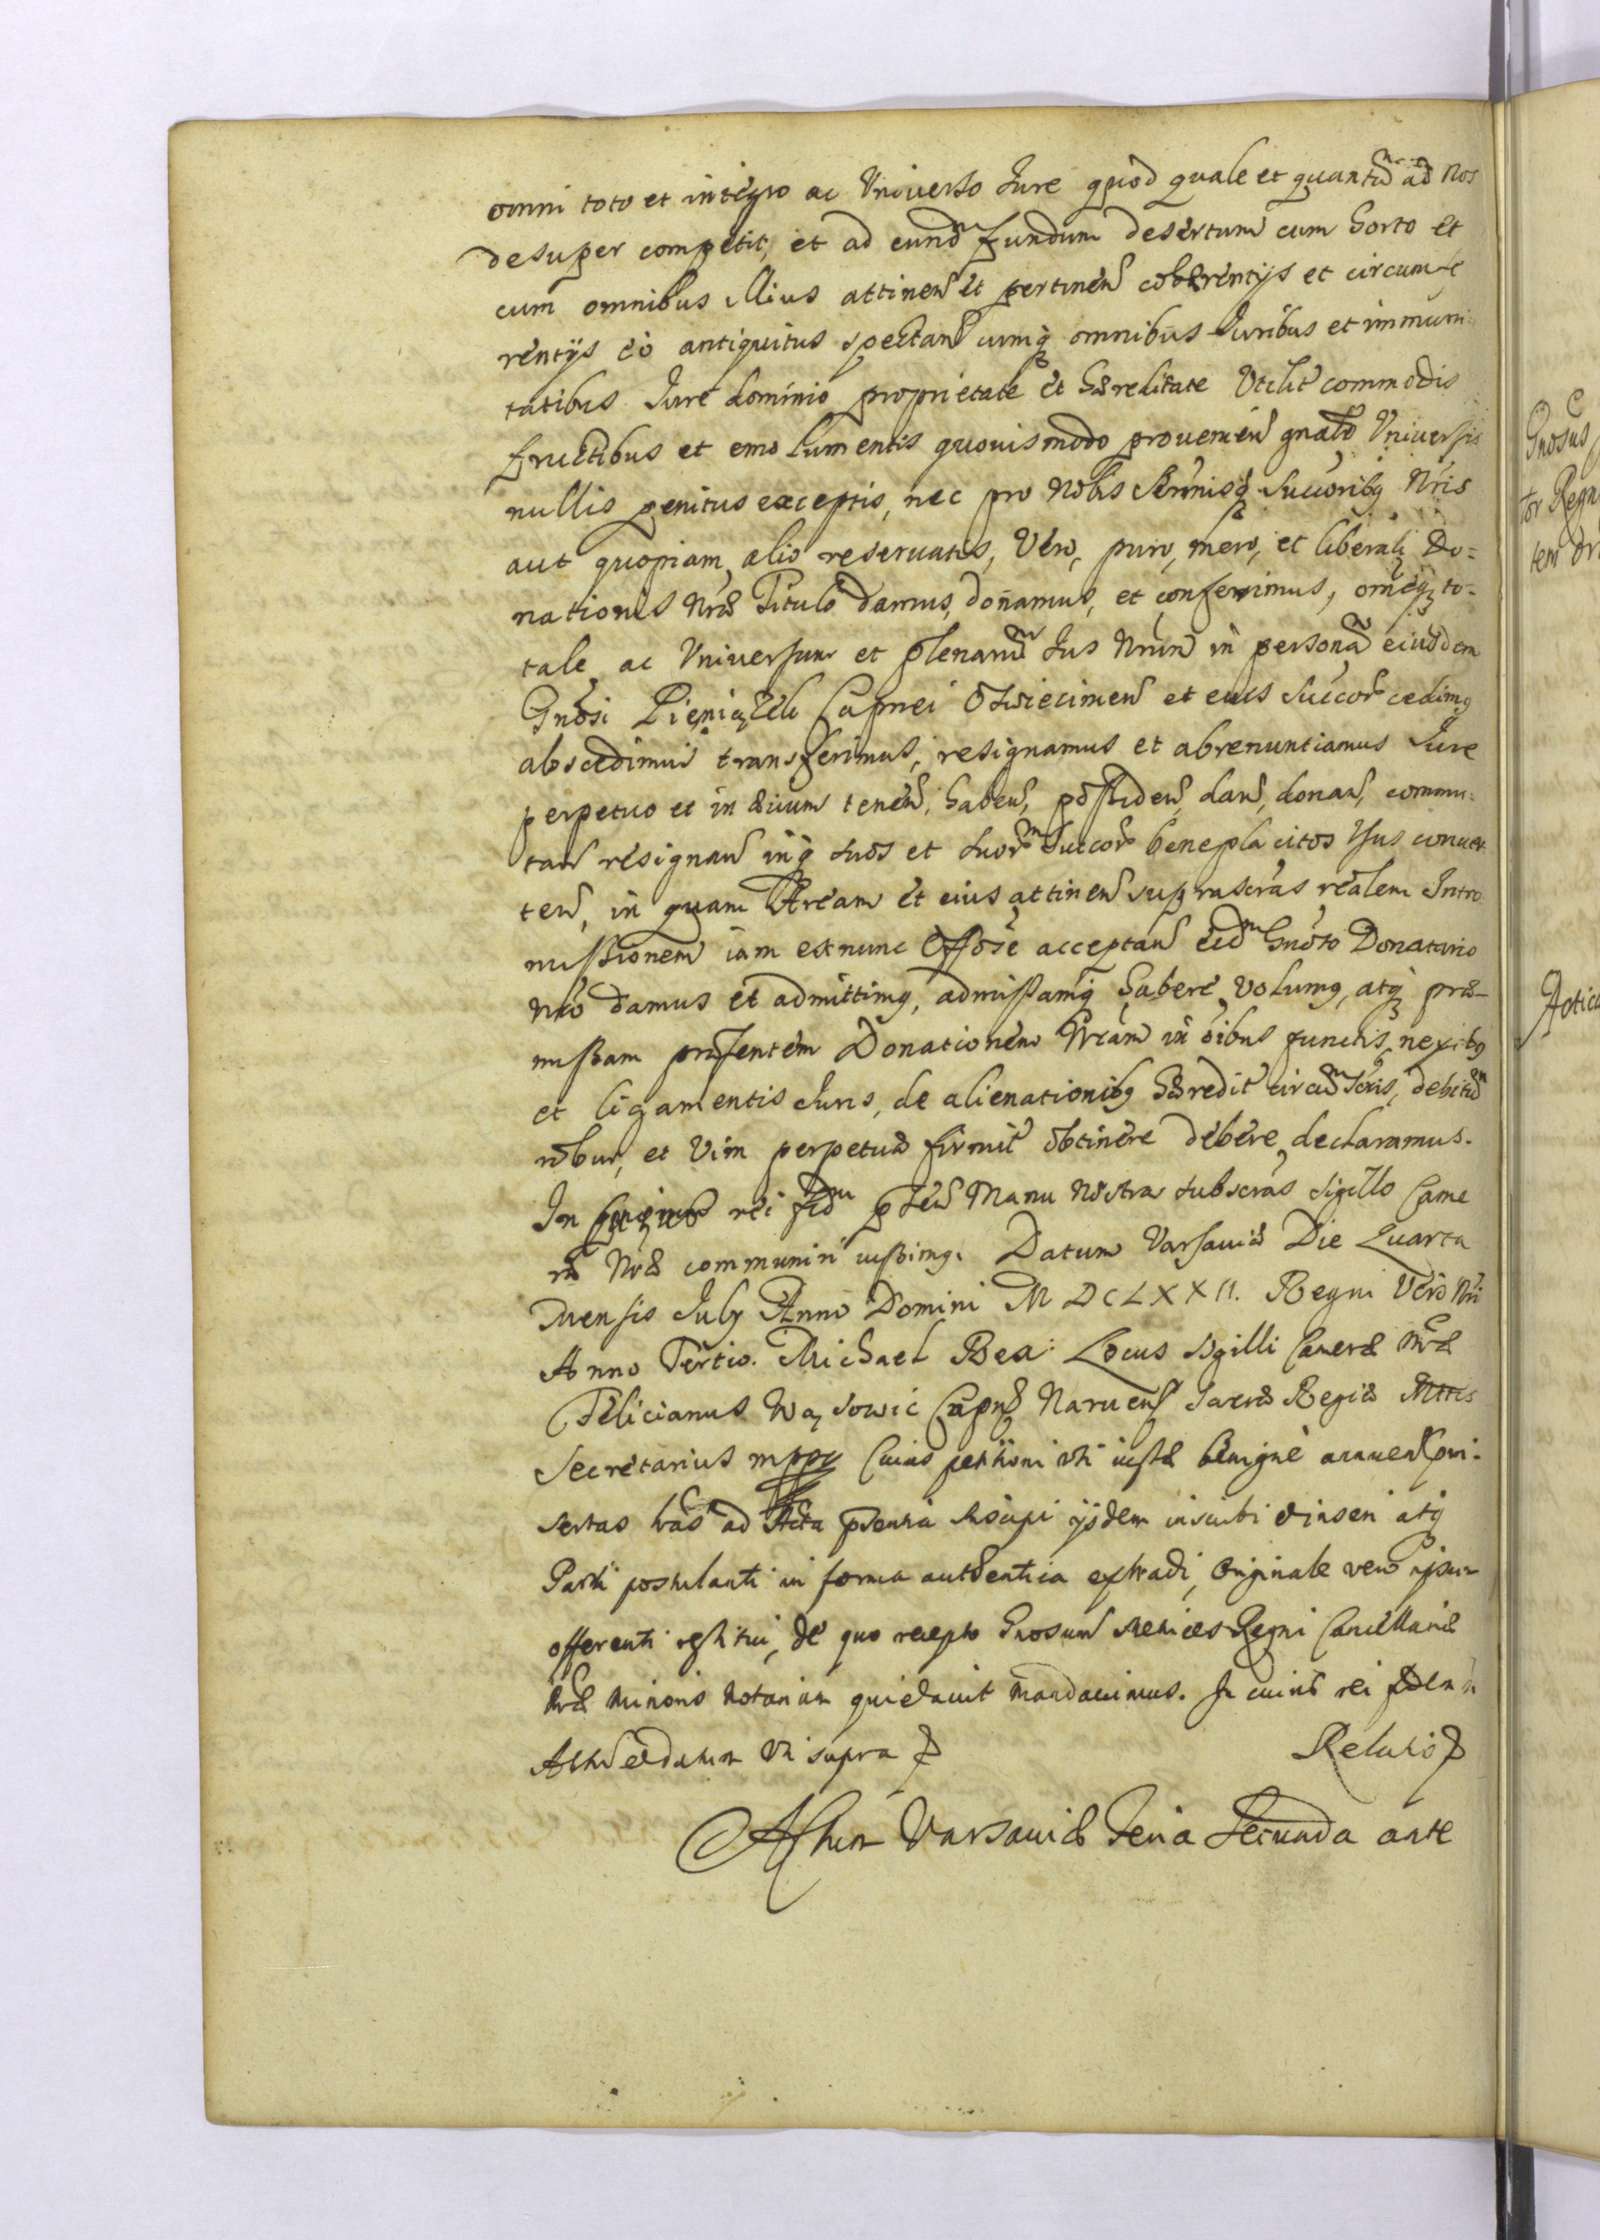 omni toto et integro ac Universo Jure quod quale et quantũ ad Nos
desuper competit, et ad eund fundum desertum cum horto et
cum omnibus illius attineñ et pertineñ cohærentijs et circumfe
rentijs eò antiquitus spectañ cumq omnibus Juribus et immuni
tatibus Jure dominio proprietate et hæreditate Utilit commodis
fructibus et emolumentis quouismodo prouenieñ gnalr Universis
nullis penitus exceptis, nec pro Nobis Serenisq Succoribq Nris
aut quopiam alio reseruatis, Vero, puro, mero, et liberali Do=
nationis Nræ Titulo damus, donamus, et conferimus, omeq to-
tale ac Universum et plenariũ Jus Nrum in personã eiusdem
Gnosi Pieniązek Capnei Oswiecimeñ et eius Succor cedimq
abscedimus transferimus, resignamus et abrenuntiamus Jure
perpetuo et in æuum teneñ, habeñ, possideñ, dañ, donañ, commu=
tañ resignañ inq suos et suor Succor beneplacitos Usus conuer
teñ, in quam Aream et eius attineñ suprascras realem Intro
missionem iam ex nunc Offose acceptañ eid Gnoso Donatario
Nro damus et admittimq, admissamq habere volumq, atq præ-
missam præsentem Donationem Nram in oibus punctis, nexibq
et ligamentis Juris, de alienationibq hæredit circũscris, debitũ
robur, et Vim perpetuã firmit obtinere debere declaramus.
In cuius rei fid pnteñ Manu Nostra subscras Sigillo Came
ræ Nræ communiri iussimq. Datum Varsauiæ Die Quarta
Mensis July Anno Domini M DCLXXII. Regni Vero Nri
Anno Tertio. Michael Rex: Locus Sigilli Cameræ Nræ
Felicianus Wąsowic Capnę Narueñ Sacræ Regiæ Mttis
Secretarius mppa Cuius petitioni uti iustæ benigne annueñ præi-
sertas lras ad Acta præntia suscipi ijsdem inscribi et inseri atq
Parti postulanti in forma authentica extradi, Originale vero ipsum
offerenti restitui, de quo recepto Gnosum Metrices Regni Cancellariæ
Nræ Minoris Notarium quietauit mandauimus. In cuius rei fidem
Actũ et datum uti supra
Relatio
Actum Varsauiæ Feria Secunda ante
Gnosus
tor Regn
tem
Actica